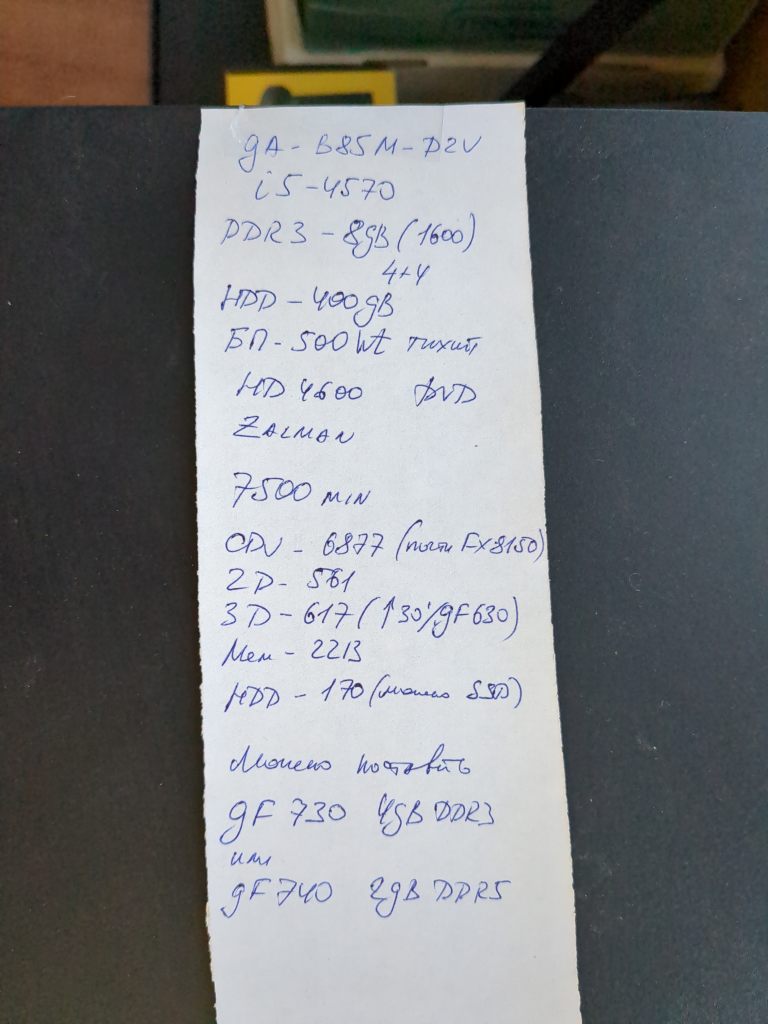 gA - B85M - D2V
i5-4570
DDR3 - 8gB (1600)
4+4
HDD - 400gB
БП - 500Wt тихий
HD 4600 DVD
ZALMAN
7500 MIN
CPU - 6877 (почти FX8150)
2D - 561
3D - 617 (↑30% gF630)
Mem - 2213
HDD - 170 (можно SSD)
Можно поставить
gF 730 4gB DDR3
или
gF 740 2gB DDR5